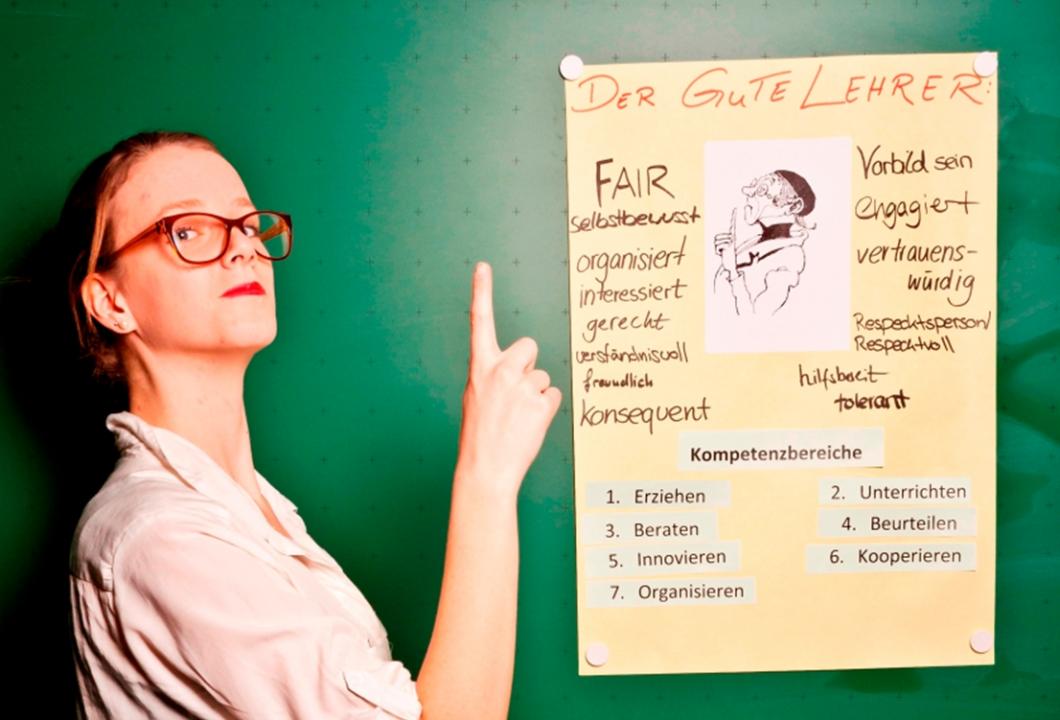 DER GUTE LEHRER:
FAIR
selbstbewusst
organisiert
interessiert
gerecht
verständnisvoll
freundlich
konsequent
Vorbild sein
engagiert
vertrauens-
würdig
Respecktsperson/
Respecktvoll
hilfsbereit
tolerant
Kompetenzbereiche
1. Erziehen
2. Unterrichten
3. Beraten
4. Beurteilen
5. Innovieren
6. Kooperieren
7. Organisieren